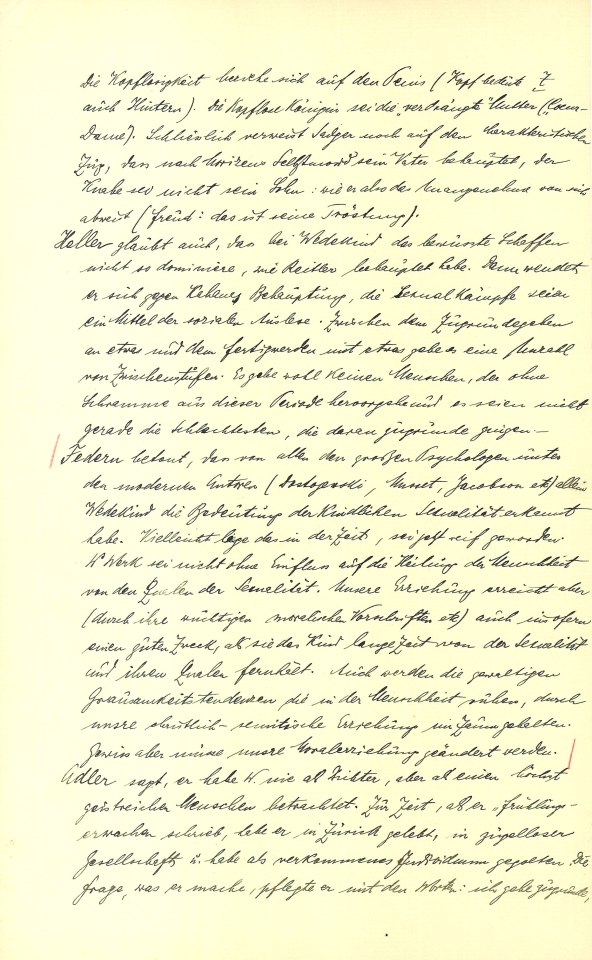 Die Kopflosigkeit beziehe sich auf den Penis (Kopf bedeute
auch Hintern). Die Kopflose Königin sei die „verdrängte" Mutter („Coeur-
Dame). Schließlich verweist Sadger noch auf den charakteristischen
Zug, dass nach Morizens Selbstmord sein Vater behauptet, der
Knabe sei nicht sein Sohn: wie er also das Unangenehme von sich
abweist (Freud: das ist seine Tröstung).
Heller glaubt auch, dass bei Wedekind das bewusste Schaffen
nicht so dominiere, wie Reitler behauptet habe. Dann wendet
er sich gegen Behauptung, die Sexualkämpfe seien
ein Mittel der sozialen Auslese. Zwischen dem Zugrundegehen
an etwas und dem fertigwerden mit etwas gebe es eine Anzahl
von Zwischenstufen. Es gebe wohl keinen Menschen, der ohne
Schramme aus dieser Periode hervorgehe und es seien nicht
gerade die schlechtesten, die daran zugrunde giengen.–
Federn betont, dass von allen den großen Psychologen unter
den modernen Autoren (Dostojewski, Musset, Jacobsen etc) allein
Wedekind die Bedeutung der kindlichen Sexualität erkannt
habe. Vielleicht liege das in der Zeit, sei jetzt reif geworden.
W Werk sei nicht ohne Einfluss auf die Heilung der Menschheit
von den Qualen der Sexualität. Unsere Erziehung erreicht aber
(durch ihre moralischen Vorschriften etc) auch insofern
einen guten Zweck, als sie das Kind lange Zeit von der Sexualität
und ihren Qualen fernhält. Auch werden die gewaltigen
Grausamkeitstendenzen die in der Menschheit ruhen, durch
unsre christlich-semitische Erziehung im Zaum gehalten.
Gewiss aber müsse unsre Moralerziehung geändert werden.
Adler sagt, er habe W nie als Dichter, aber als einen höchst
geistreichen Menschen betrachtet. Zur Zeit, als er „Frühlings-
erwachen schrieb, habe er in Zürich gelebt, in zügelloser
Gesellschaft u. habe als verkommenes Individuum gegolten. Die
Frage, was er mache, pflegte er mit den Worten: ich gehe zugrunde,